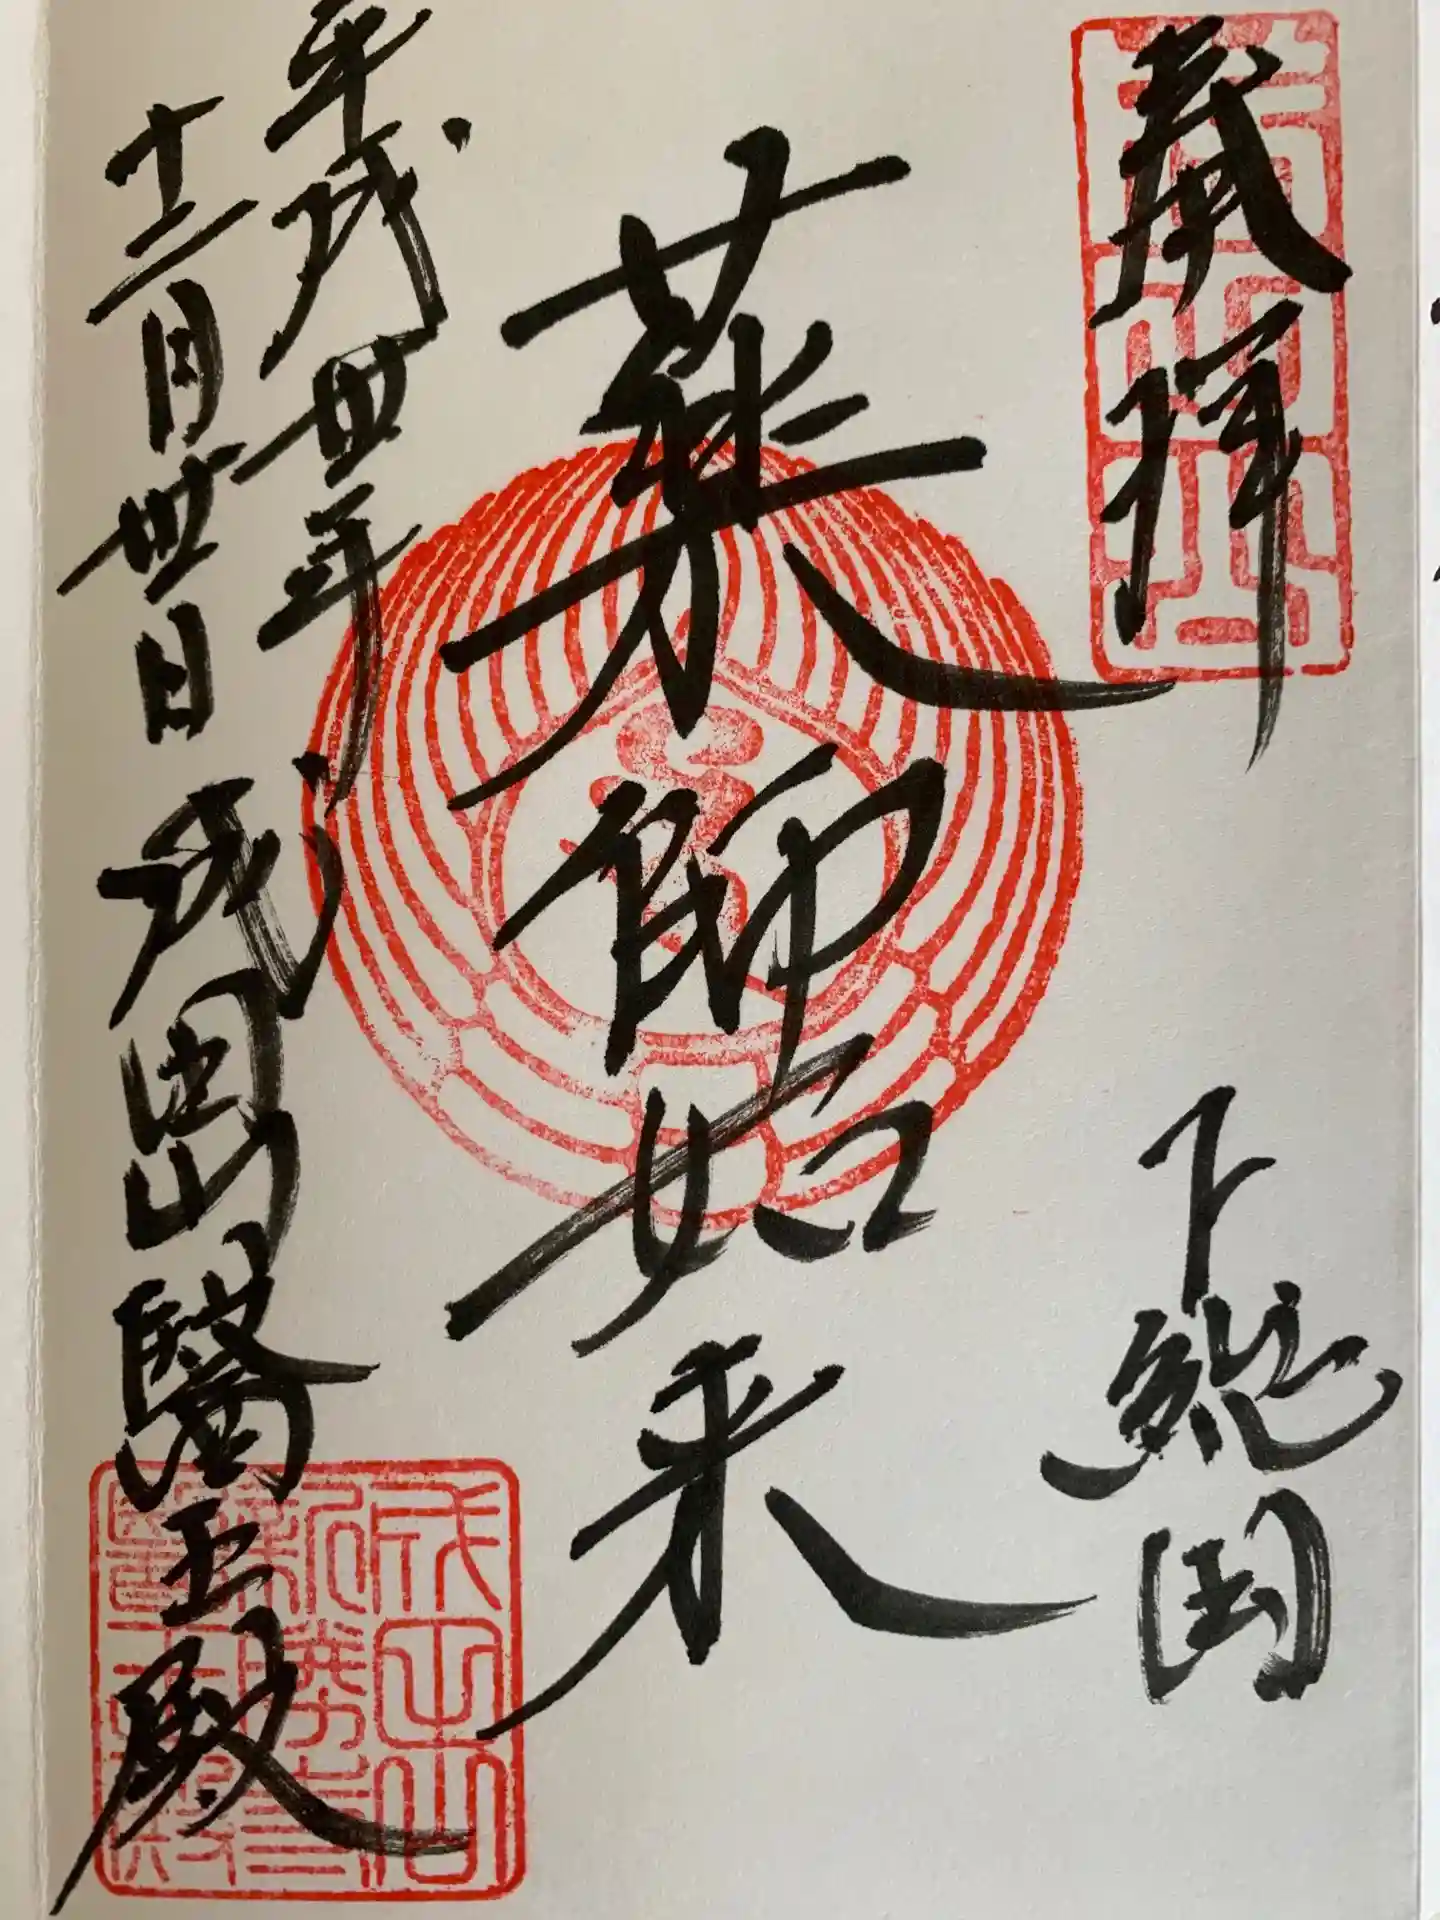 拝
下総国
薬師如来
平成丗年
十二月丗日 成田山醫王殿